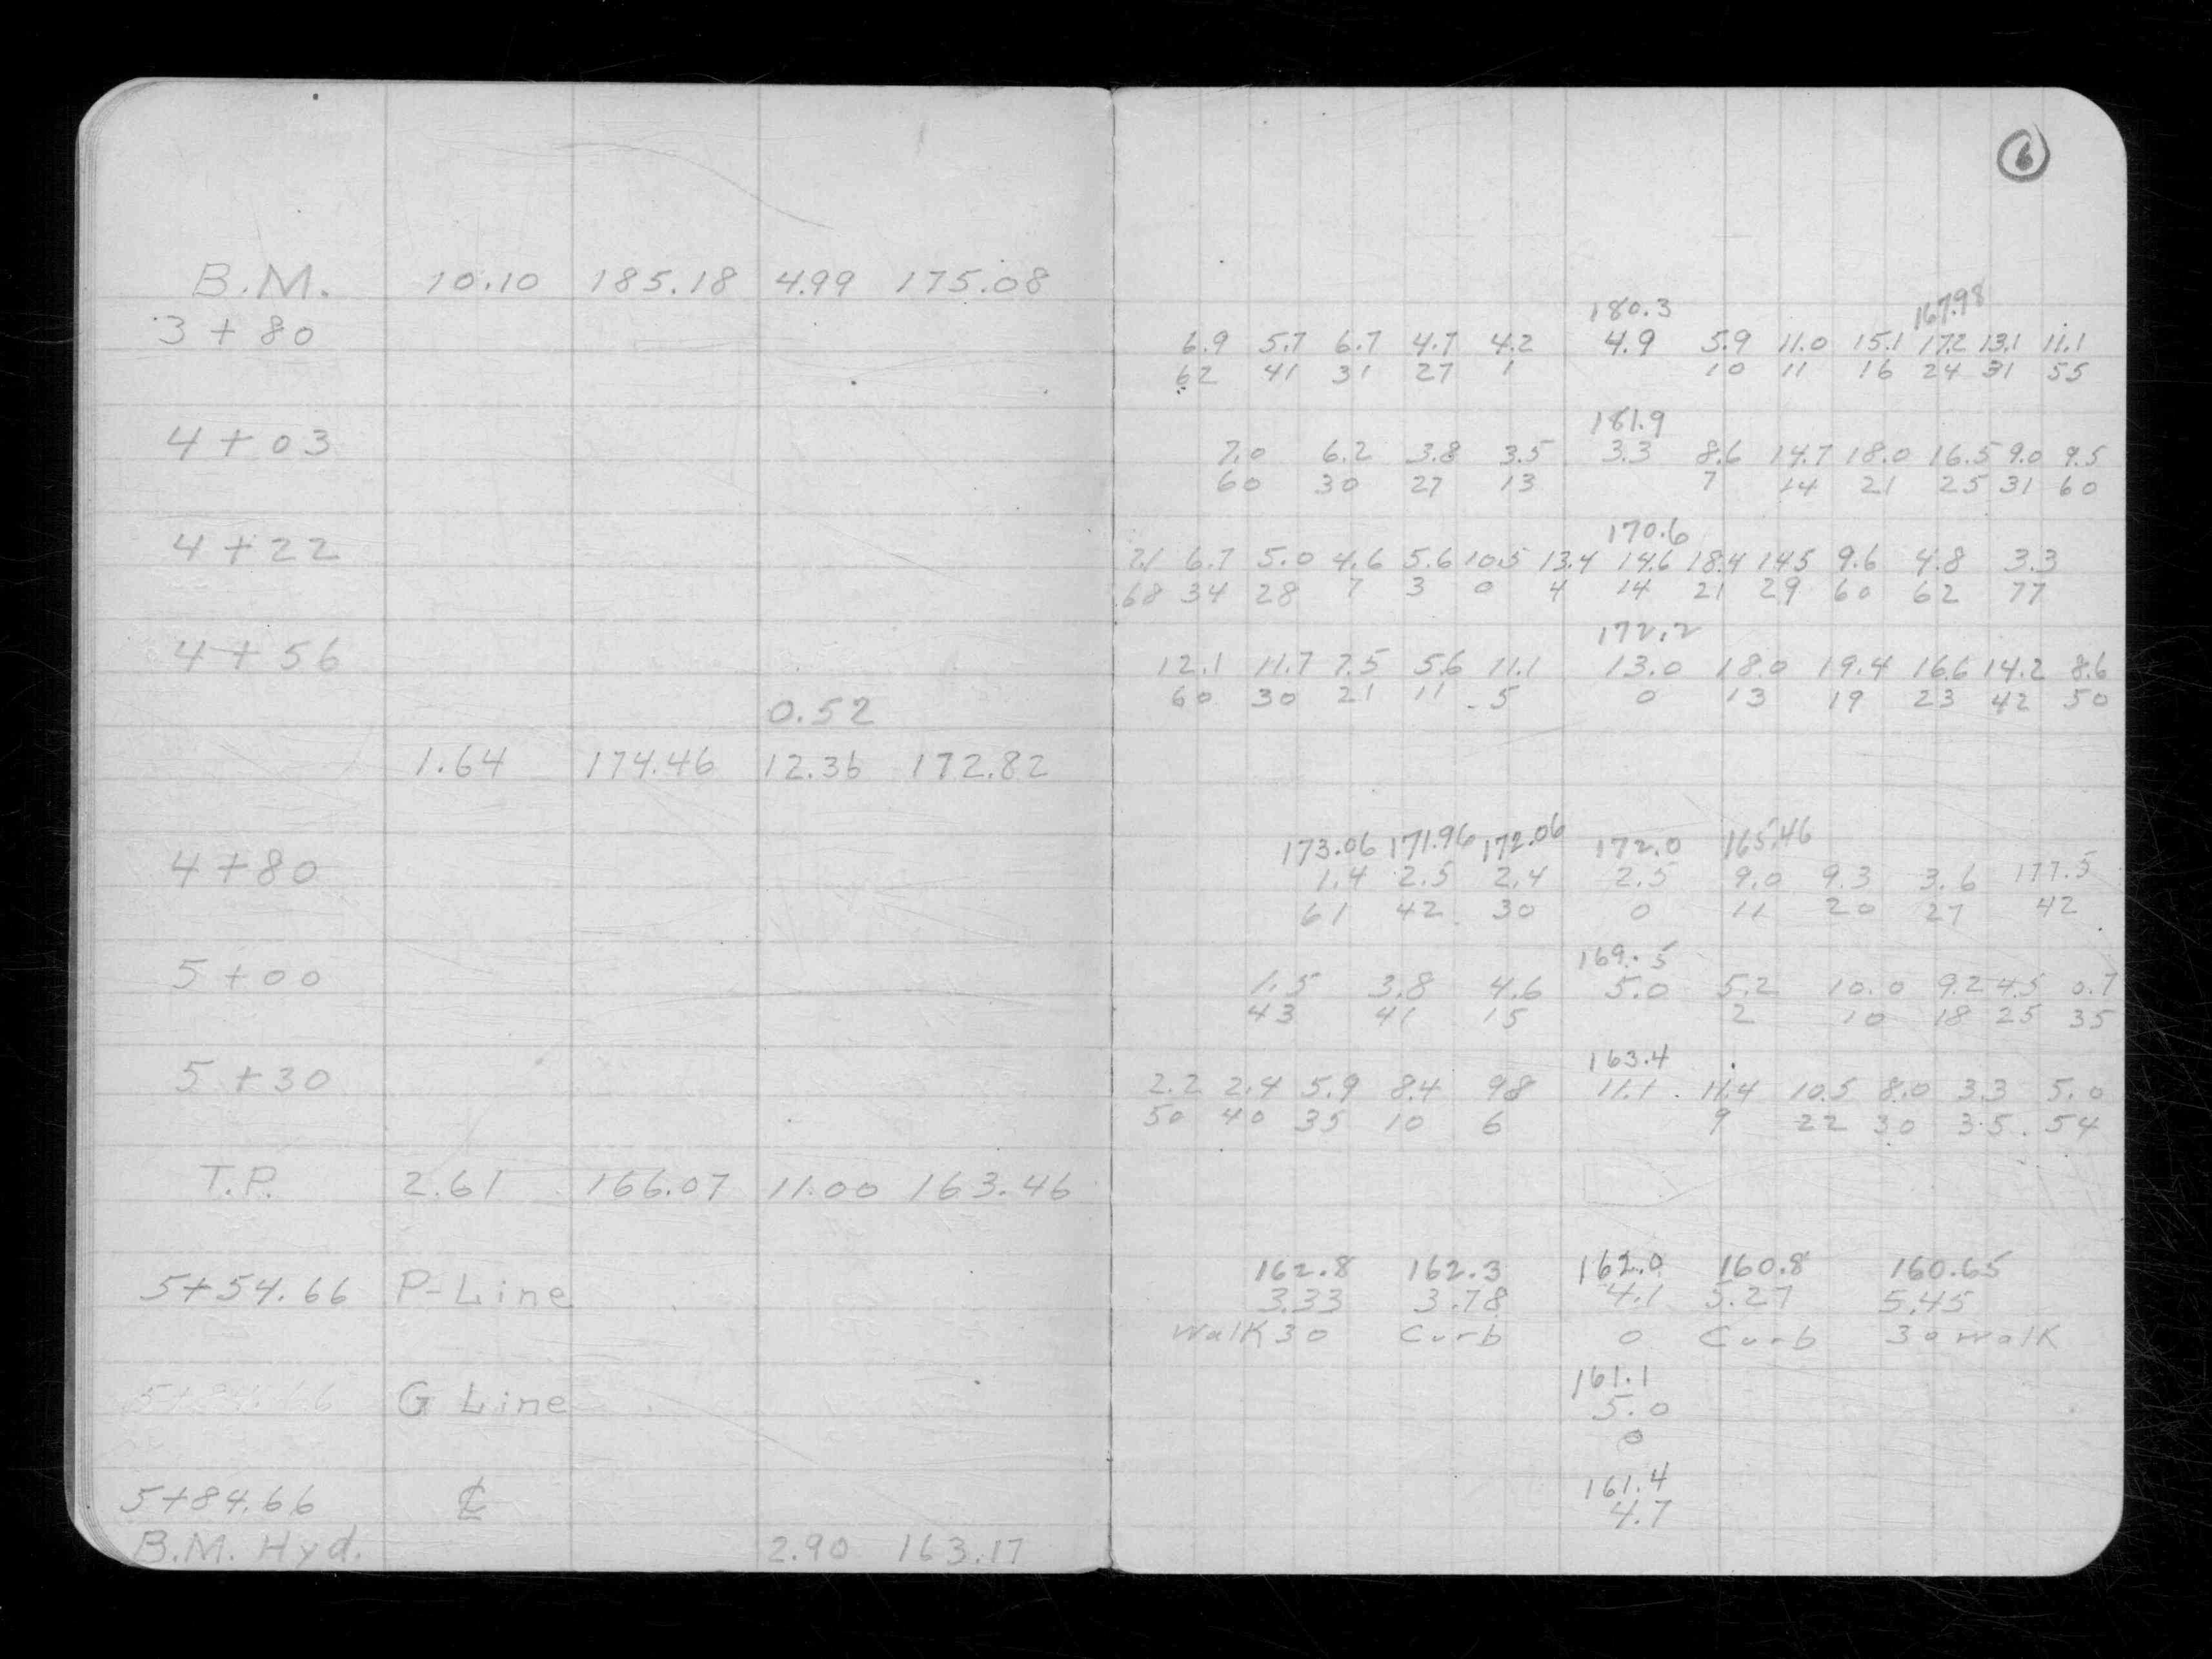 6
B.M. 10.10 185.18 4.99 175.08
180.3 167.98
3+80 6.9 5.7 6.7 4.7 4.2 4.9 5.9 11.0 15.1 17.2 13.1 11.1
62 41 31 27 1 10 11 16 24 31 55
181.9
4+03 7.0 6.2 3.8 3.5 3.3 8.6 14.7 18.0 16.5 9.0 9.5
60 30 27 13 7 14 21 25 31 60
170.6
4+22 7.1 6.7 5.0 4.6 5.6 10.5 13.4 14.6 18.4 14.5 9.6 4.8 3.3
68 34 28 7 3 0 4 14 21 29 60 62 77
172.2
4+56 12.1 11.7 7.5 5.6 11.1 13.0 18.0 19.4 16.6 14.2 8.6
60 30 21 11 5 0 13 19 23 42 50
0.52
1.64 174.46 12.36 172.82
173.06 171.96 172.06 172.0 165.46
4+80 1.4 2.5 2.4 2.5 9.0 9.3 3.6 177.5
61 42 30 0 11 20 27 42
169.5
5+00 1.5 3.8 4.6 5.0 5.2 10.0 9.2 4.5 0.7
43 41 15 2 10 18 25 35
163.4
5+30 2.2 2.4 5.9 8.4 9.8 11.1 11.4 10.5 8.0 3.3 5.0
50 40 35 10 6 9 22 30 35 54
T.P. 2.61 166.07 11.00 163.46
162.8 162.3 162.0 160.8 160.65
5+54.66 P-Line 3.33 3.78 4.1 5.27 5.45
Walk 30 Curb 0 Curb 30 walk
161.1
G Line 5.0
0
161.4
5+84.66 ℄ 4.7
B.M. Hyd. 2.90 163.17